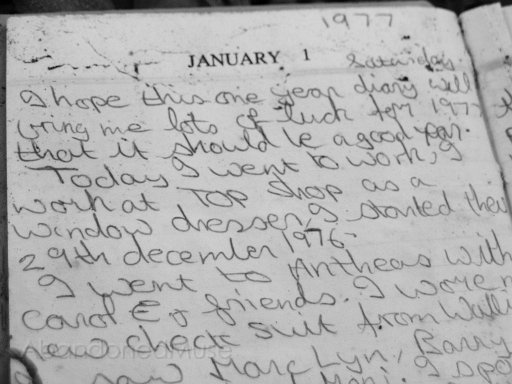 1977
JANUARY 1 Saturday
I hope this one year diary will
bring me lots of luck for 1977
that it should be a good year.
Today I went to work, I
work at TOP Shop as a
window dresser I started their
29th december 1976.
I went to Antheas with
Carol E & friends. I wore
check suit from Wall
saw Marc Lyn, Barry
I spo
AbandonedMuse